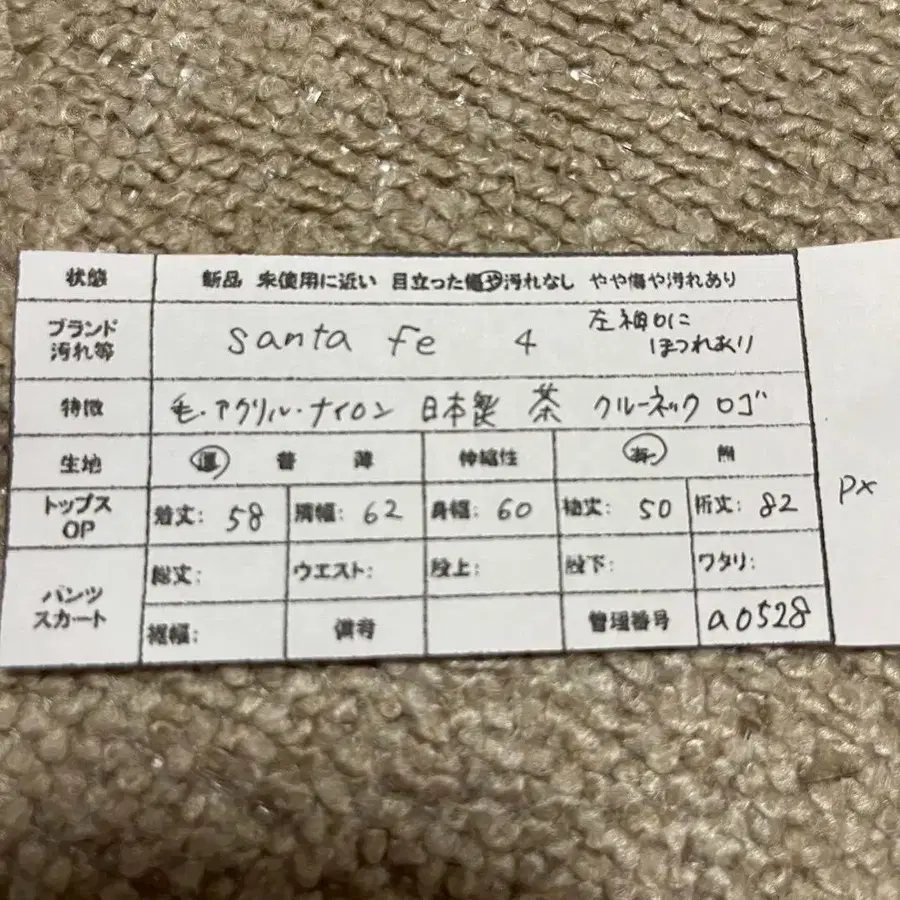 状態 新品 未使用に近い 目立った傷や汚れなし やや傷や汚れあり
ブランド 汚れ等 santa fe 4 左袖口に ほつれあり
特徴 毛・アクリル・ナイロン 日本製 茶 クルーネック ロゴ
生地 厚 普 薄 伸縮性 有 無
トップス OP 着丈: 58 肩幅: 62 身幅: 60 袖丈: 50 裄丈: 82
パンツ スカート 総丈: ウエスト: 股上: 股下: ワタリ:
裾幅: 備考 管理番号 a0528
px